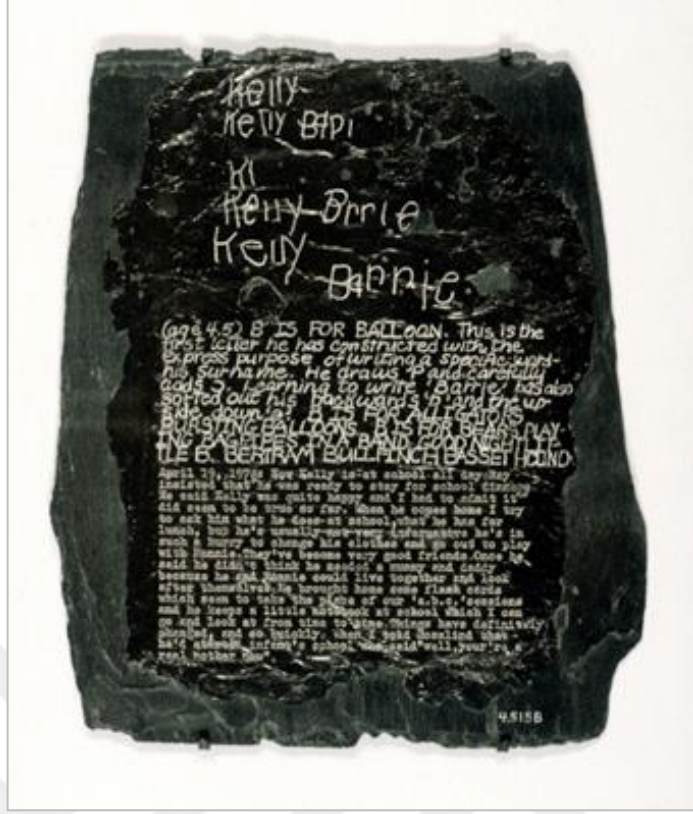 Kelly
Kelly BAPI
KI
Kelly Brrie
Kelly
Barrie
(age 4.5) B IS FOR BALLOON. This is the
first letter he has constructed with the
express purpose of writing a specific word-
his surname. He draws 'P' and carefully
adds  . Learning to write 'Barrie' has also
sorted out his backwards 'n' and the up-
side down  . B IS FOR ALLIGATORS
BURSTING BALLOONS. B IS FOR BEARS PLAY-
ING BAGPIPES IN A BAND. GOOD NIGHT LIT
TLE B. BERTRAM BULLFINCH BASSET HOUND
April 19, 1978: Now Kelly is at school all day. Ray
insisted that he was ready to stay for school dinners.
He said Kelly was quite happy and I had to admit it
did seem to be true so far. When he comes home I try
to ask him what he does at school, what he has for
lunch, but he's usually not very informative he's in
such a hurry to change his clothes and go out to play
with Ronnie. They've become very good friends. Once he
said he didn't think he needed a mummy and daddy
because he and Ronnie could live together and look
after themselves. He brought home some flash cards
which seem to take the place of our 'a.b.c.' sessions
and he keeps a little notebook at school which I can
go and look at from time to time. Things have definitely
changed, and so quickly. When I told Rosalind that
he'd started infant's school she said 'well, you're a
real mother now'
4.515B